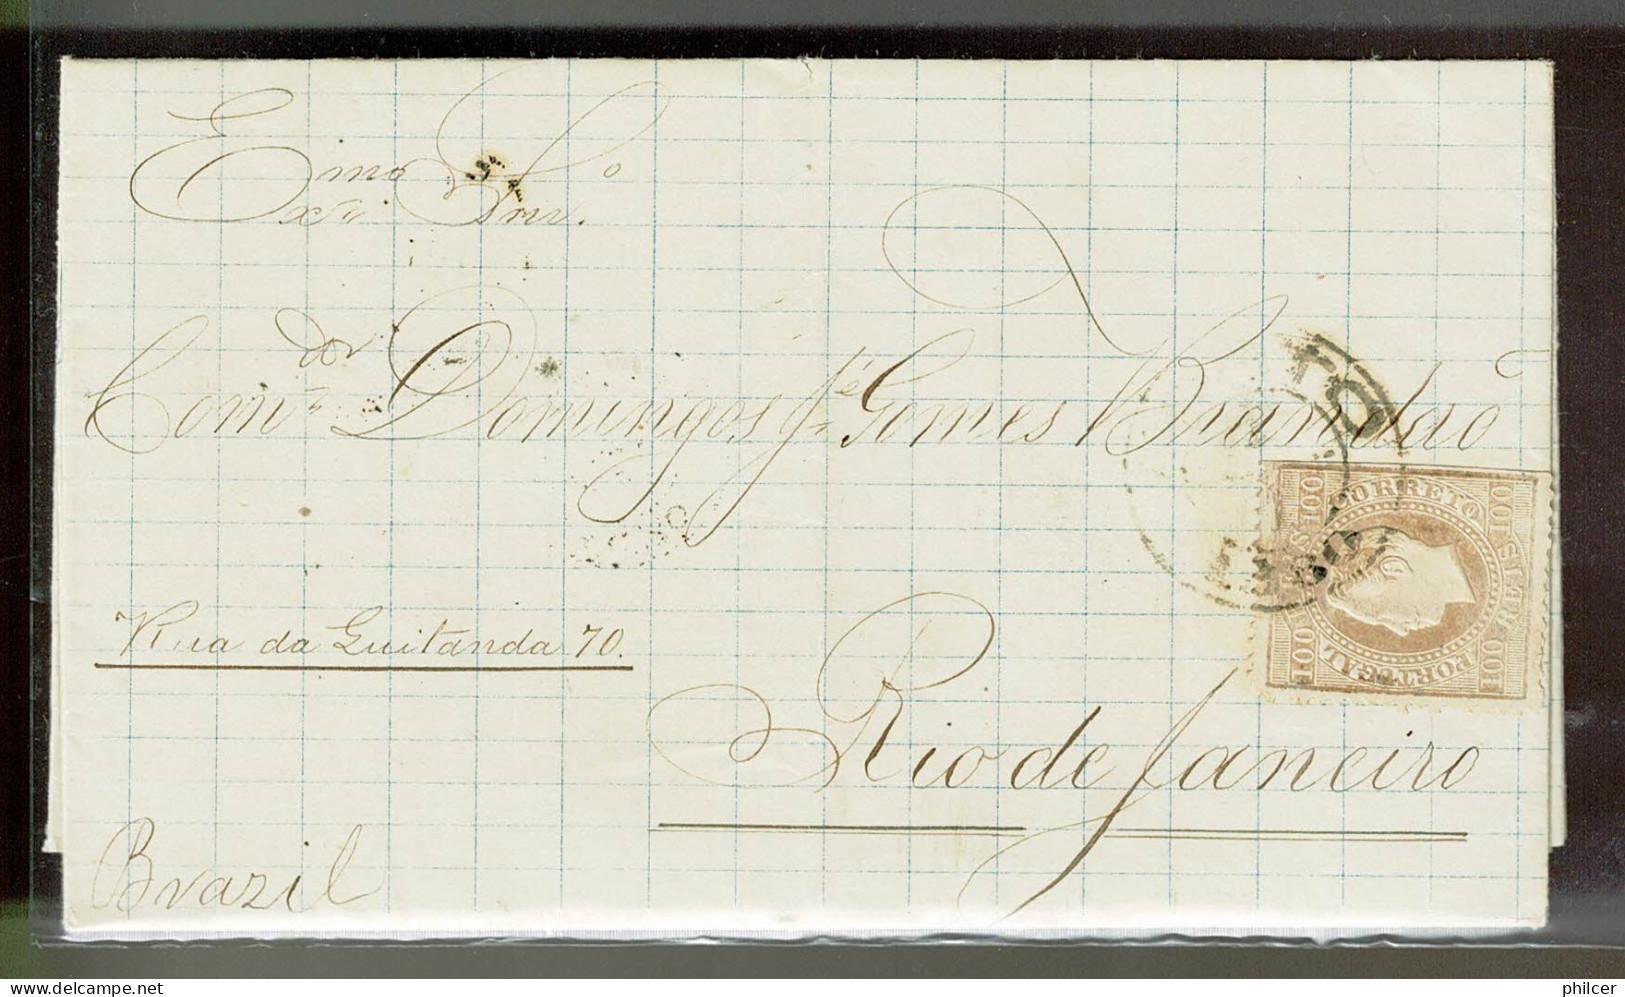 Exmo Snr.
Comdor Domingos Jé Gomes Brandão
Rua da Quitanda 70.
Rio de Janeiro
Brazil
CORREIO
100 REIS 100
PORTUGAL
100 REIS 100
philcer